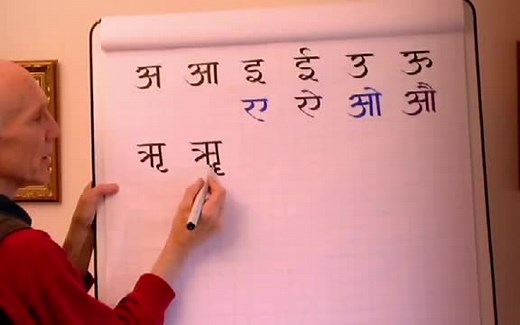 अ आ इ ई उ ऊ
ए ऐ ओ औ
ऋ ॠ